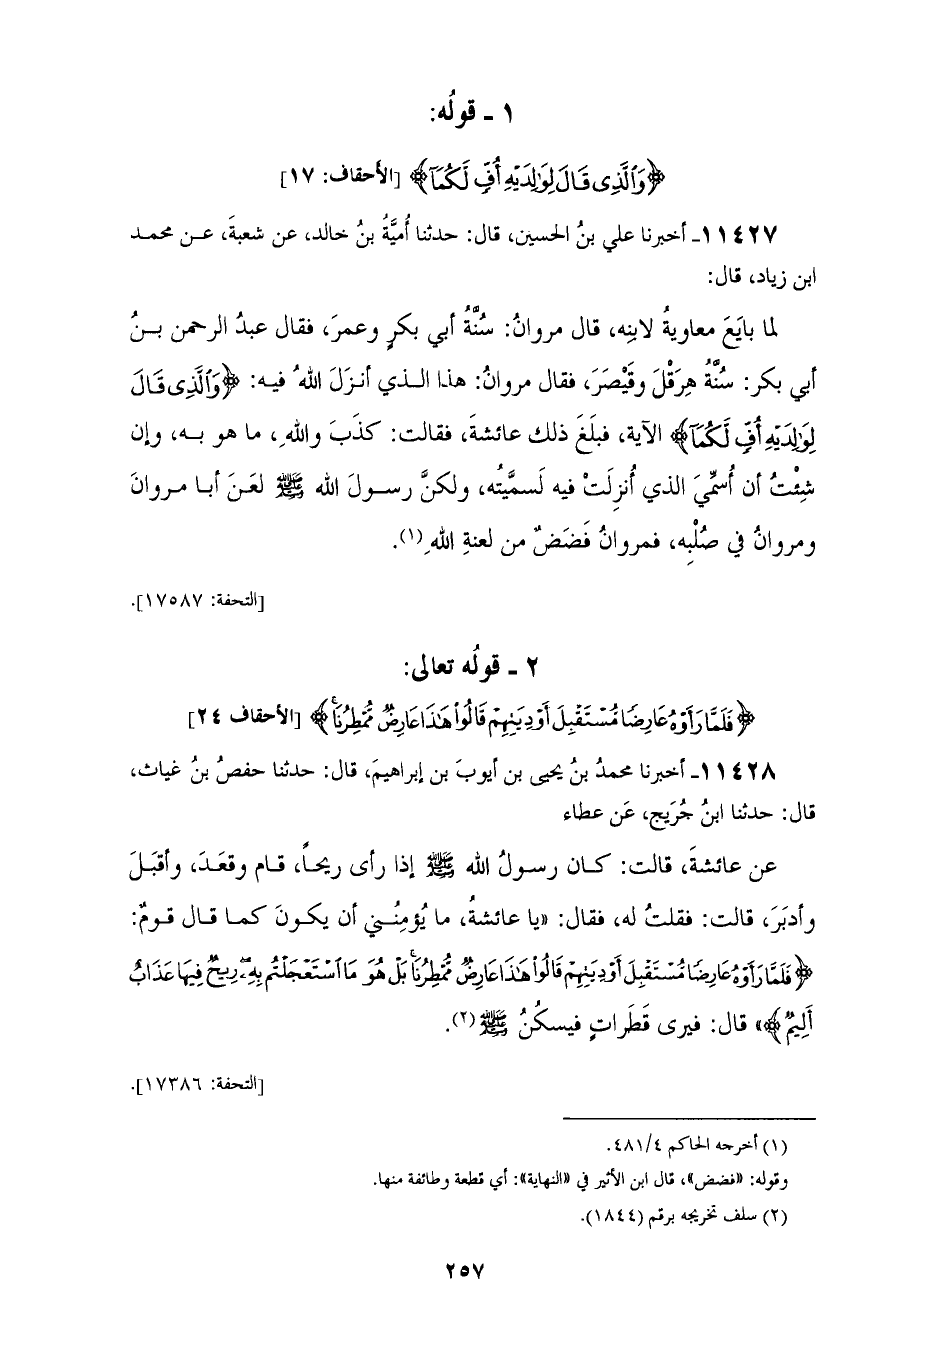 ١ ـ قولُه:
﴿وَٱلَّذِى قَالَ لِوَٰلِدَيْهِ أُفٍّ لَّكُمَآ﴾ [الأحقاف: ١٧]
١١٤٢٧ـ أخبرنا علي بنُ الحسين، قال: حدثنا أُميَّةُ بنُ خالد، عن شعبةَ، عـن محمـد
ابن زياد، قال:
لما بايَعَ معاويةُ لابنِه، قال مروانُ: سُنَّةُ أبي بكرٍ وعمرَ، فقال عبدُ الرحمن بـنُ
أبي بكر: سُنَّةُ هِرَقْلَ وقَيْصَرَ، فقال مروانُ: هذا الـذي أنـزَلَ اللهُ فيـه: ﴿وَٱلَّذِى قَالَ
لِوَٰلِدَيْهِ أُفٍّ لَّكُمَآ﴾ الآية، فبلَغَ ذلك عائشةَ، فقالت: كذَبَ واللهِ، ما هو بـه، وإن
شِئْتُ أن أُسمِّيَ الذي أُنزِلَتْ فيه لَسمَّيتُه، ولكنَّ رسـولَ الله ﷺ لعَنَ أبـا مـروانَ
ومروانُ في صُلْبِه، فمروانُ فَضَضٌ من لعنةِ اللهِ(١).
[التحفة: ١٧٥٨٧].
٢ ـ قولُه تعالى:
﴿فَلَمَّا رَأَوْهُ عَارِضًا مُّسْتَقْبِلَ أَوْدِيَتِهِمْ قَالُوا۟ هَٰذَا عَارِضٌ مُّمْطِرُنَا ۚ﴾ [الأحقاف ٢٤]
١١٤٢٨ـ أخبرنا محمدُ بنُ يحيى بن أيوبَ بن إبراهيمَ، قال: حدثنا حفصُ بنُ غياث،
قال: حدثنا ابنُ جُرَيج، عَن عطاء
عن عائشةَ، قالت: كـان رسـولُ الله ﷺ إذا رأى ريحـاً، قـام وقعَـدَ، وأقبَـلَ
وأدبَرَ، قالت: فقلتُ له، فقال: «يا عائشةُ، ما يُؤمِنُـني أن يكـونَ كمـا قـال قـومٌ:
﴿فَلَمَّا رَأَوْهُ عَارِضًا مُّسْتَقْبِلَ أَوْدِيَتِهِمْ قَالُوا۟ هَٰذَا عَارِضٌ مُّمْطِرُنَا ۚ بَلْ هُوَ مَا ٱسْتَعْجَلْتُم بِهِۦ ۖ رِيحٌ فِيهَا عَذَابٌ
أَلِيمٌ﴾» قال: فيرى قَطَراتٍ فيسكُنُ ﷺ(٢).
[التحفة: ١٧٣٨٦].
(١) أخرجه الحاكم ٤٨١/٤.
وقوله: «فضض»، قال ابن الأثير في «النهاية»: أي قطعة وطائفة منها.
(٢) سلف تخريجه برقم (١٨٤٤).
٢٥٧